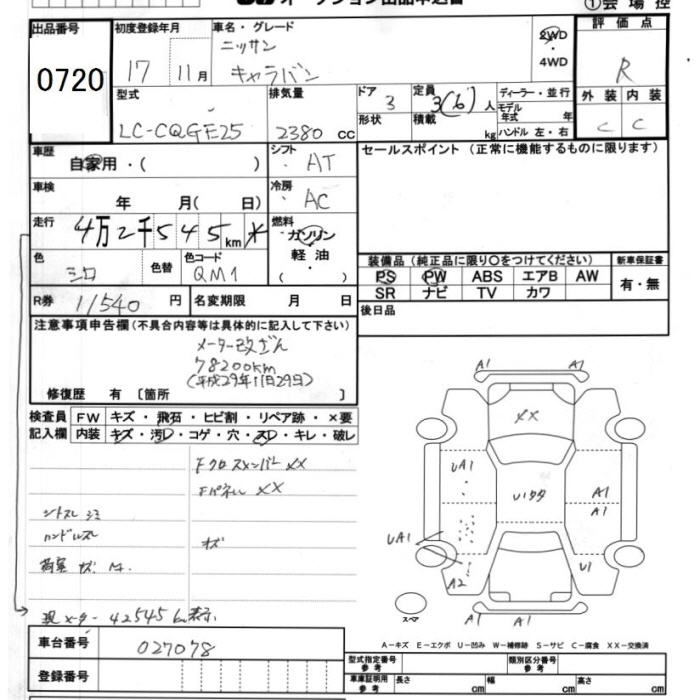 ①会場控
出品番号
0720
初度登録年月
17 11月
車名・グレード
ニッサン
キャラバン
2WD
・
4WD
評価点
R
型式
LC-CQGE25
排気量
2380 cc
ドア
3
形状
定員
3(6)人
積載
kg
ディーラー・並行
モデル年式 年
ハンドル 左・右
外装 内装
C C
車歴
自家用・( )
シフト
・AT
セールスポイント (正常に機能するものに限ります)
車検
年 月( 日)
冷房
・AC
走行
4万2千545km *
燃料
ガソリン
軽油
( )
色
シロ
色替
色コード
QM1
装備品 (純正品に限り○をつけてください)
新車保証書
PS PW ABS エアB AW
SR ナビ TV カワ
有・無
R券
11540円
名変期限 月 日
後日品
注意事項申告欄(不具合内容等は具体的に記入して下さい)
メーター改ざん
78200km
(平成29年11月29日)
修復歴 有 [箇所 ]
検査員
記入欄
FW キズ・飛石・ヒビ割・リペア跡・×要
内装 キズ・汚レ・コゲ・穴・スレ・キレ・破レ
Fクロスメンバー XX
Fパネル XX
シートスレ シミ
ハンドルスレ
荷室 キズ
現メーター 42545km表示
A1 A1
XX
UA1
A1
A1
UA1
A2
U1
A1 A1
スペア
A-キズ E-エクボ U-凹み W-補修跡 S-サビ C-腐食 XX-交換済
車台番号
027078
登録番号
型式指定番号
参考
類別区分番号
参考
車庫証明用
参考
長さ cm
幅 cm
高さ cm